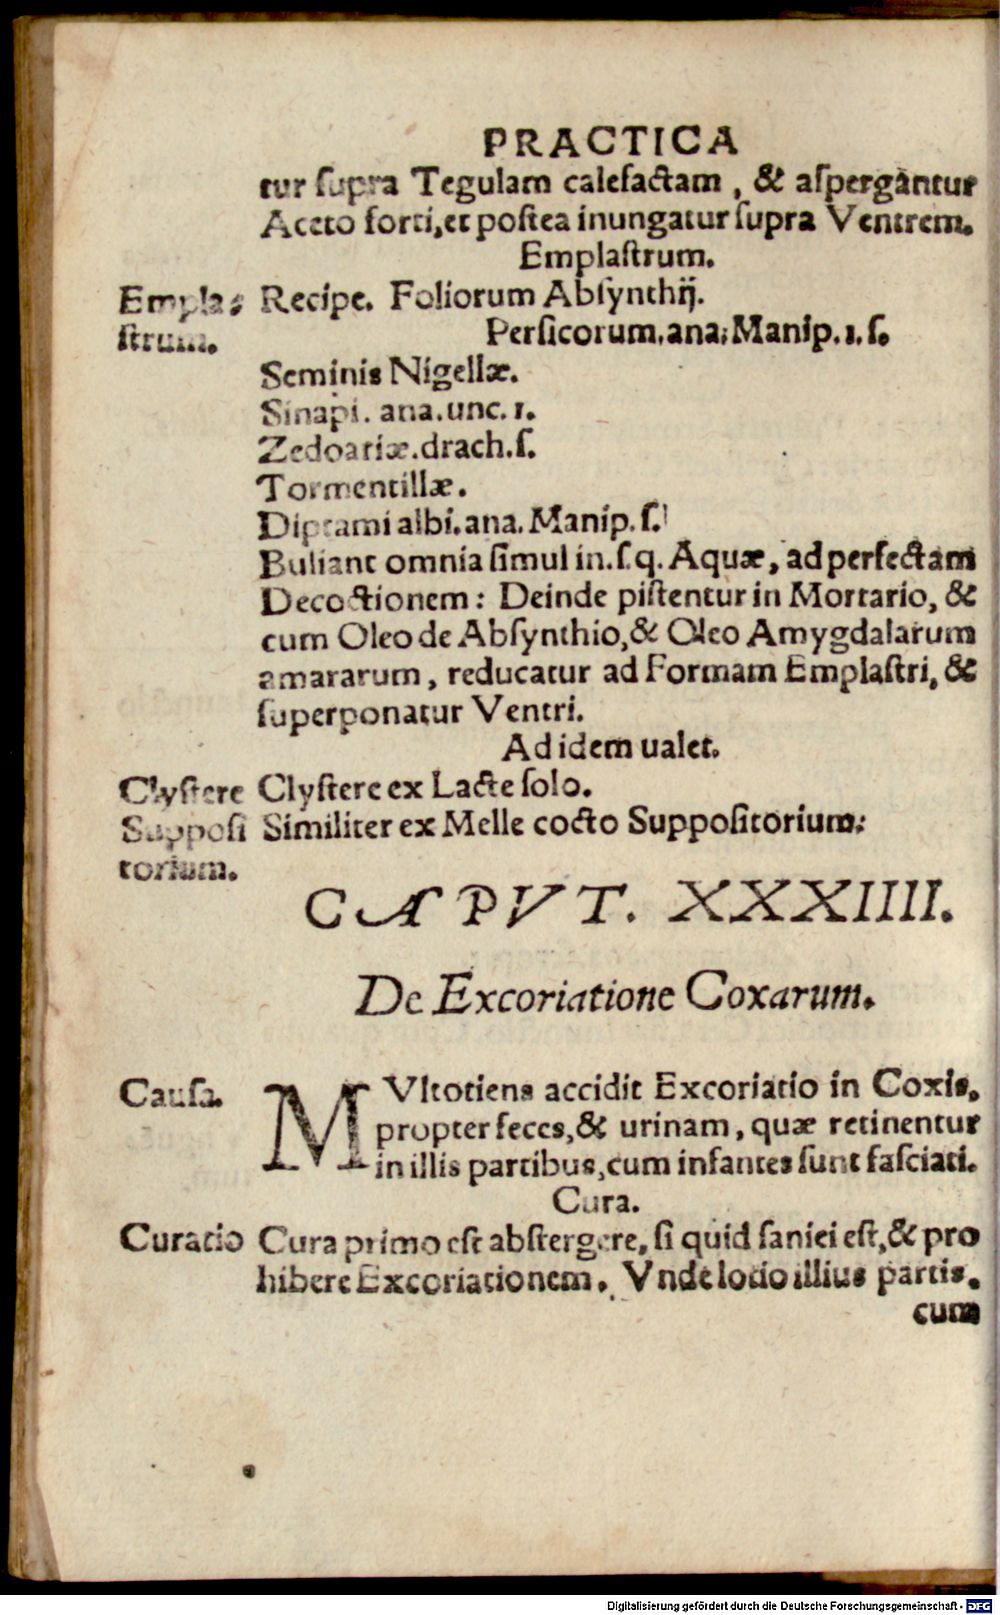 PRACTICA
tur ſupra Tegulam calefactam, & aſpergantur
Aceto forti, et poſtea inungatur ſupra Ventrem.
Emplaſtrum.
Empla⸗
ſtrum.
Recipe. Foliorum Abſynthij.
Perſicorum. ana. Manip. 1. ſ.
Seminis Nigellæ.
Sinapi. ana. unc. 1.
Zedoariæ. drach. ſ.
Tormentillæ.
Diptami albi. ana. Manip. ſ.
Buliant omnia simul in. ſ. q. Aquæ, ad perfectam
Decoctionem: Deinde piſtentur in Mortario, &
cum Oleo de Abſynthio, & Oleo Amygdalarum
amararum, reducatur ad Formam Emplaſtri, &
ſuperponatur Ventri.
Ad idem ualet.
Clyſtere
Clyſtere ex Lacte ſolo.
Suppoſi
torium.
Similiter ex Melle cocto Suppoſitorium.
CAPVT. XXXIIII.
De Excoriatione Coxarum.
Cauſa.
MVltotiens accidit Excoriatio in Coxis,
propter feces, & urinam, quæ retinentur
in illis partibus, cum infantes ſunt faſciati.
Cura.
Curatio
Cura primo eſt abſtergere, ſi quid ſaniei eſt, & pro
hibere Excoriationem. Vnde lotio illius partis.
cum
Digitalisierung gefördert durch die Deutsche Forschungsgemeinschaft - DFG